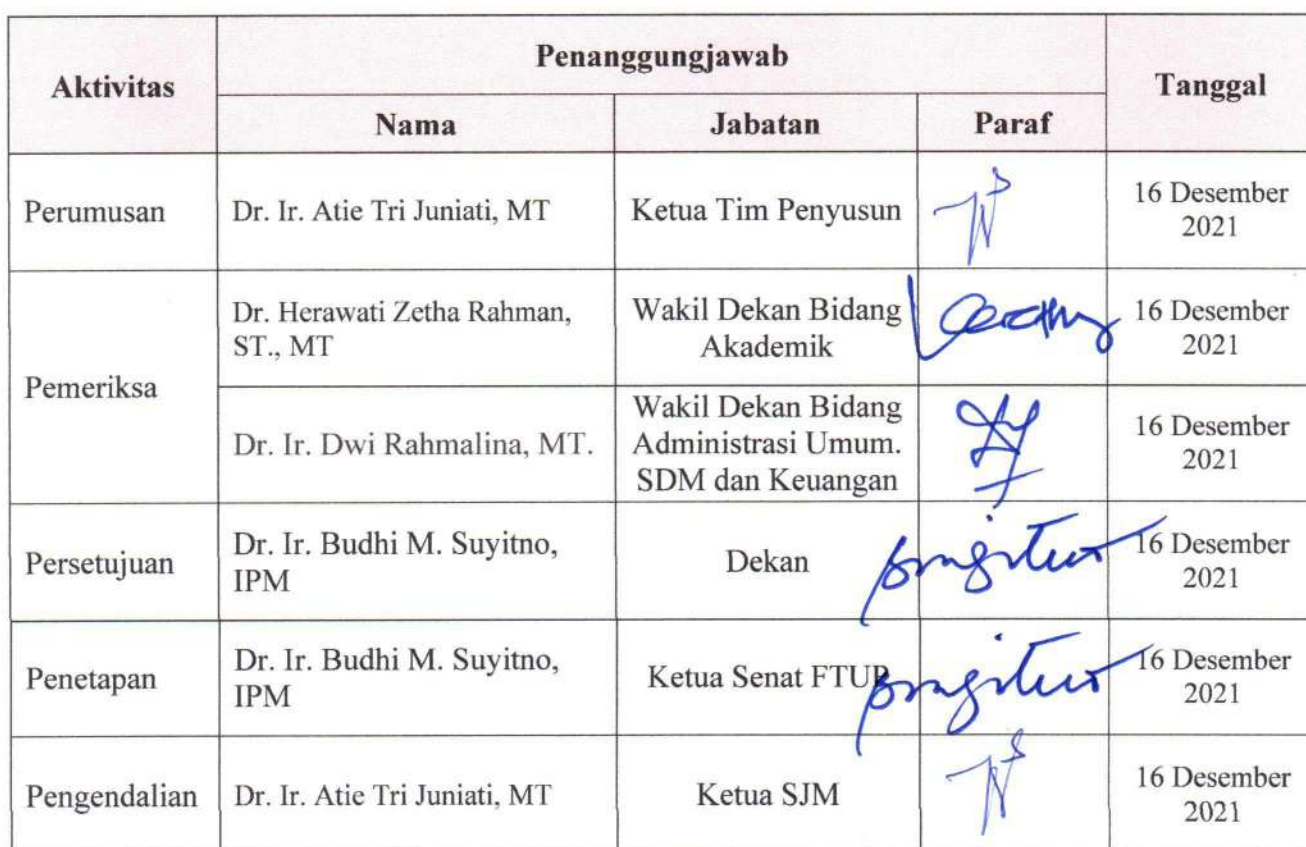 Aktivitas
Penanggungjawab
Tanggal
Nama
Jabatan
Paraf
Perumusan
Dr. Ir. Atie Tri Juniati, MT
Ketua Tim Penyusun
16 Desember
2021
Pemeriksa
Dr. Herawati Zetha Rahman,
ST., MT
Wakil Dekan Bidang
Akademik
16 Desember
2021
Dr. Ir. Dwi Rahmalina, MT.
Wakil Dekan Bidang
Administrasi Umum.
SDM dan Keuangan
16 Desember
2021
Persetujuan
Dr. Ir. Budhi M. Suyitno,
IPM
Dekan
16 Desember
2021
Penetapan
Dr. Ir. Budhi M. Suyitno,
IPM
Ketua Senat FTUP
16 Desember
2021
Pengendalian
Dr. Ir. Atie Tri Juniati, MT
Ketua SJM
16 Desember
2021